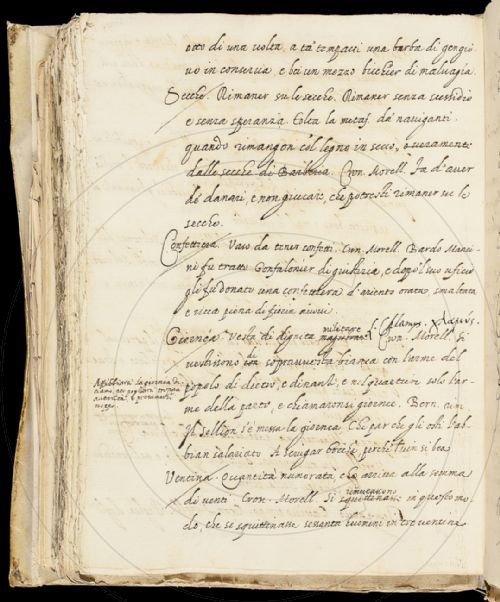 otto di una volta, a tâ tempacci una barba di gengio
vo in conserva, e ber un mezzo bicchier di malvagia.
Secche. Rimaner su le secche. Rimaner senza sussidio
e senza speranza. Tolta la metaf. da' naviganti
quando rimangon col legno in secco, o veramente
dalle secche di Barberia. Cron. Morell. Fa d'aver
de' danari, e non giucare, che potresti rimaner su le
secche.
Confettiera. Vaso da tener confetti. Cron. Morell. Bardo Manci-
ni fu tratto Gonfalonier di giustizia, e dopo 'l suo uficio
gli fu donato una confettiera d'ariento orata, smaltata
e tutta piena di fiorin nuovi.
militare
Giornea. Vesta di dignita Cron. Morell. Si
vestirono con sopravvesta bianca con l'arme del
popolo di dietro, e dinanzi, e nel quartiere solo l'ar-
me della parte, e chiamaronsi giornee. Bern. rim.
Il s'è messa la giornea Che par che gli osti l'ab-
bian salariato A sciugar bocche perche 'l vin si bea
Ventina. Quantità numerata, che arriva alla somma
di venti. Cron. Morell. Si in questo mo-
do, che se squittinasse sessanta huomini in tre ventine